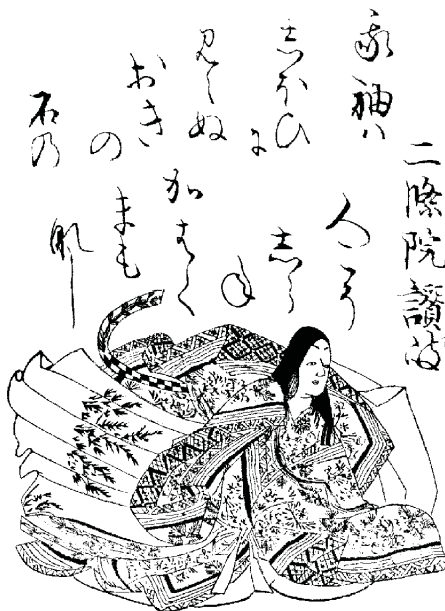 二條院讃岐
我袖ハ
志ほひ
に
見えぬ
おき
の
石乃
人こそ
志ら
ね
加はく
まも
那し